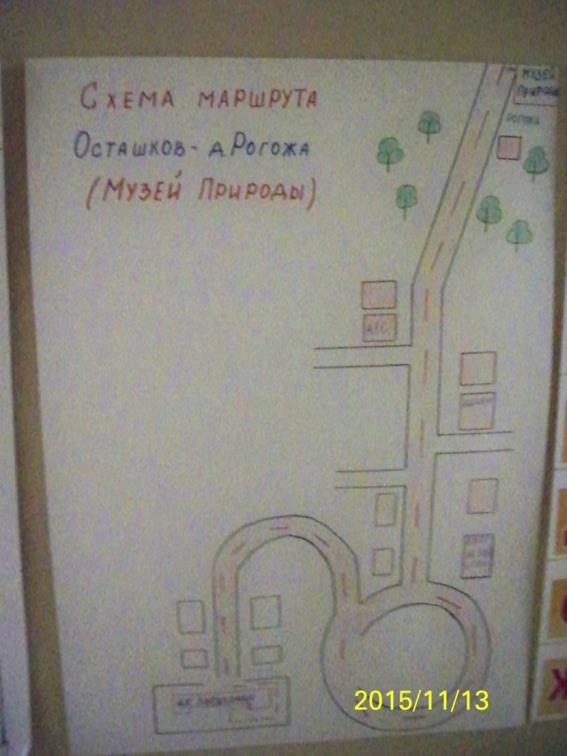 Схема маршрута
Осташков - д. Рогожа
(Музей Природы)
Музей
Природы
Рогожа
АЗС
2015/11/13
Ж